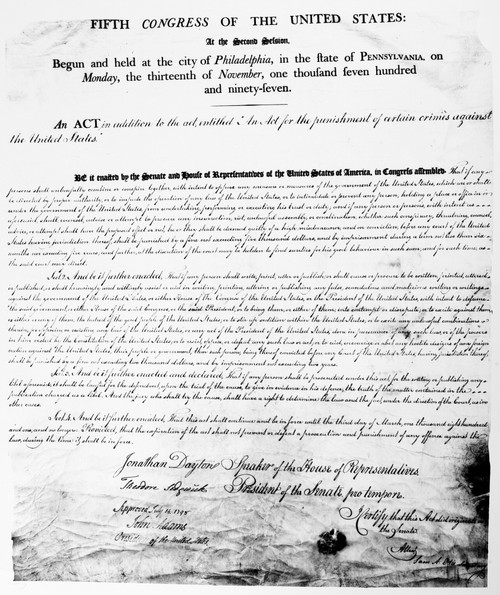 FIFTH CONGRESS OF THE UNITED STATES:
At the Second Session,
Begun and held at the city of Philadelphia, in the state of PENNSYLVANIA, on
Monday, the thirteenth of November, one thousand seven hundred
and ninety-seven.
An ACT in addition to the act, entitled "An Act for the punishment of certain crimes against
the United States."
BE it enacted by the Senate and House of Representatives of the United States of America, in Congress assembled, That if any
persons shall unlawfully combine or conspire together, with intent to oppose any measure or measures of the government of the United States, which are or shall
be directed by proper authority, or to impede the operation of any law of the United States, or to intimidate or prevent any person, holding a place or office in or
under the government of the United States, from undertaking, performing or executing his trust or duty; and if any person or persons, with intent as
aforesaid, shall counsel, advise or attempt to procure any insurrection, riot, unlawful assembly, or combination, whether such conspiracy, threatening, counsel,
advice, or attempt shall have the proposed effect or not, he or they shall be deemed guilty of a high misdemeanor, and on conviction, before any court of the United
States having jurisdiction thereof, shall be punished by a fine not exceeding five thousand dollars, and by imprisonment during a term not less than six
months nor exceeding five years; and further, at the discretion of the court may be holden to find sureties for his good behaviour in such sum, and for such time, as
the said court may direct.
Sect. 2. And be it further enacted, That if any person shall write, print, utter or publish, or shall cause or procure to be written, printed, uttered
or published, or shall knowingly and willingly assist or aid in writing, printing, uttering or publishing any false, scandalous and malicious writing or writings
against the government of the United States, or either House of the Congress of the United States, or the President of the United States, with intent to defame
the said government, or either House of the said Congress, or the said President, or to bring them, or either of them, into contempt or disrepute; or to excite against them,
or either or any of them, the hatred of the good people of the United States, or to stir up sedition within the United States, or to excite any unlawful combinations
therein, for opposing or resisting any law of the United States, or any act of the President of the United States, done in pursuance of any such law, or of the powers
in him vested by the Constitution of the United States, or to resist, oppose, or defeat any such law or act, or to aid, encourage or abet any hostile designs of any foreign
nation against the United States, their people or government, then such person, being thereof convicted before any court of the United States having jurisdiction thereof,
shall be punished by a fine not exceeding two thousand dollars, and by imprisonment not exceeding two years.
Sect. 3. And be it further enacted and declared, That if any person shall be prosecuted under this act, for the writing or publishing any
libel aforesaid, it shall be lawful for the defendant, upon the trial of the cause, to give in evidence in his defence, the truth of the matter contained in the
publication charged as a libel. And the jury who shall try the cause, shall have a right to determine the law and the fact, under the direction of the court, as in
other cases.
Sect. 4. And be it further enacted, That this act shall continue and be in force until the third day of March, one thousand eight hundred
and one, and no longer: Provided, that the expiration of the act shall not prevent or defeat a prosecution and punishment of any offence against the
law, during the time it shall be in force.
Jonathan Dayton Speaker of the House of Representatives.
Theodore Sedgwick President of the Senate, pro tempore.
Approved July 14, 1798
John Adams
President of the United States.
I Certify that this Act did originate in
the Senate.
Attest,
Sam. A. Otis, Secretary